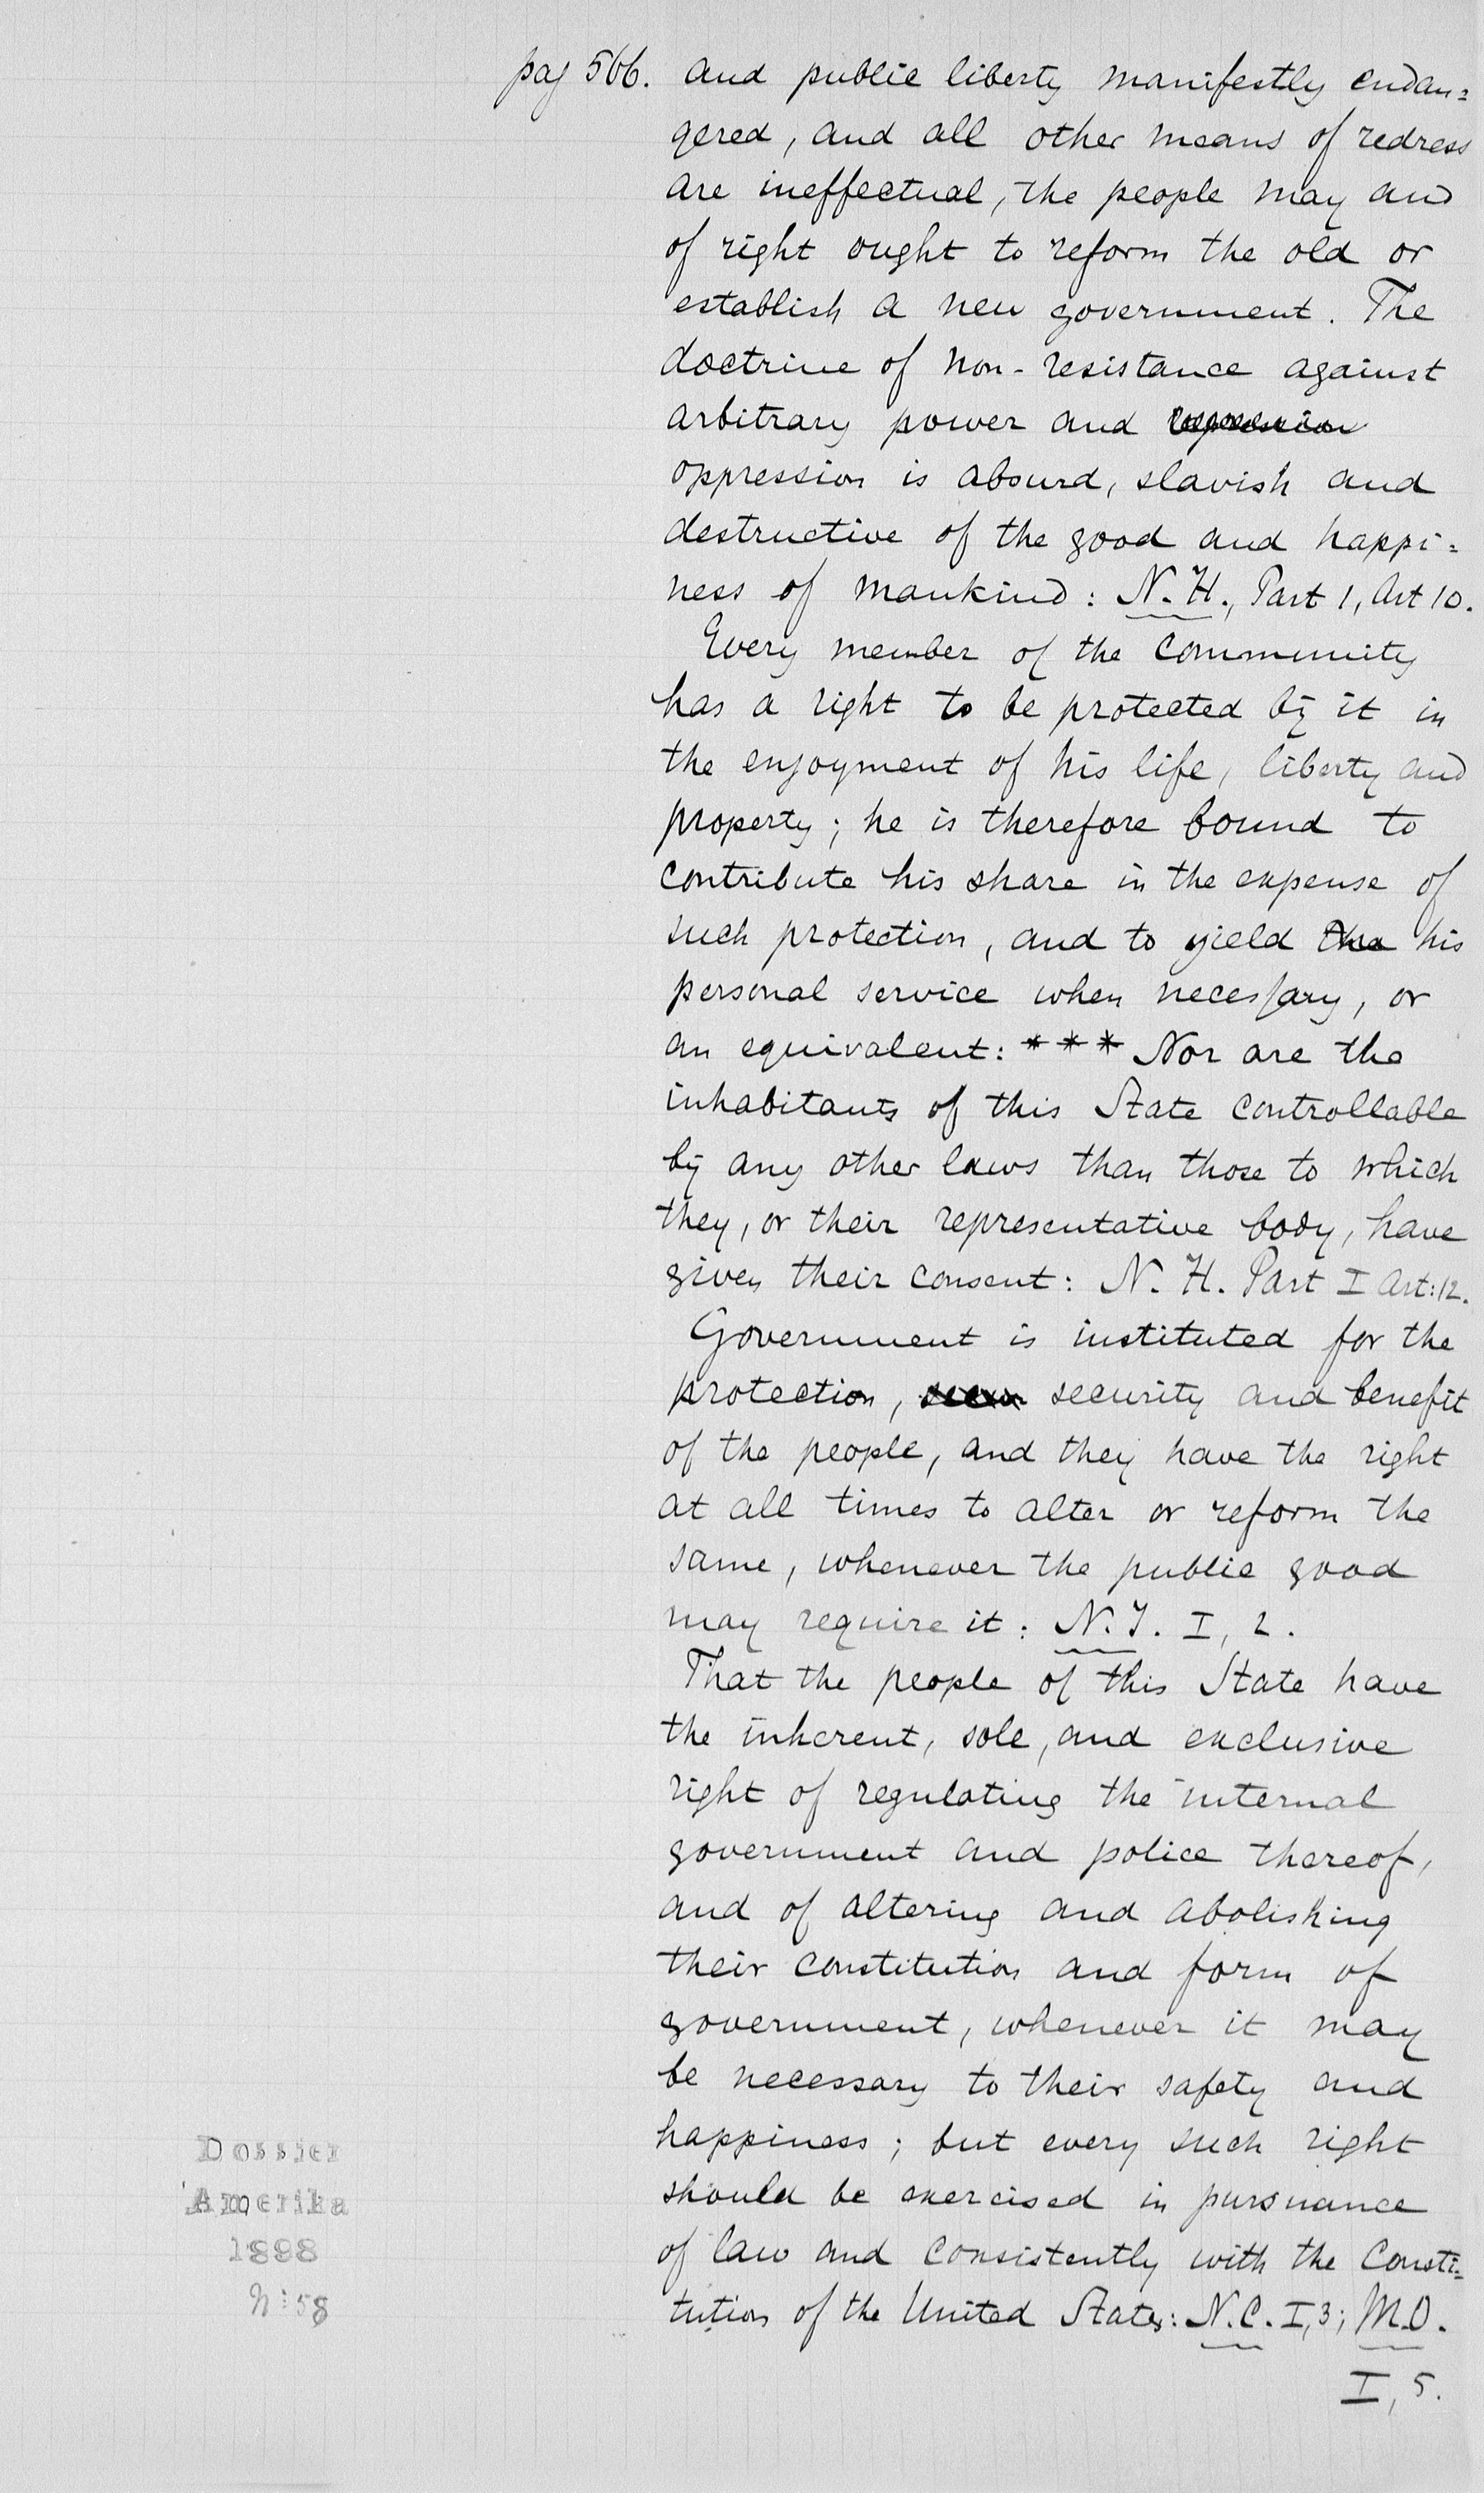 pag 566. and public liberty manifestly endan=
gered, and all other means of redress
are ineffectual, the people may and
of right ought to reform the old or
establish a new government. The
doctrine of non-resistance against
arbitrary power and
oppression is absurd, slavish and
destructive of the good and happi=
ness of mankind: N.H., Part 1, Art 10.
Every member of the community
has a right to be protected by it in
the enjoyment of his life, liberty and
property; he is therefore bound to
contribute his share in the expense of
such protection, and to yield the his
personal service when necessary, or
an equivalent: *** Nor are the
inhabitants of this State controllable
by any other laws than those to which
they, or their representative body, have
given their consent: N. H. Part I Art:12.
Government is instituted for the
protection, security and benefit
of the people, and they have the right
at all times to alter or reform the
same, whenever the public good
may require it: N.J. I, 2.
That the people of this State have
the inherent, sole, and exclusive
right of regulating the internal
government and police thereof,
and of altering and abolishing
their constitution and form of
government, whenever it may
be necessary to their safety and
happiness; but every such right
should be exercised in pursuance
of law and consistently with the Consti=
tution of the United States: N.C. I,3; M.O.
I, 5.
Dossier
Amerika
1898
N: 58